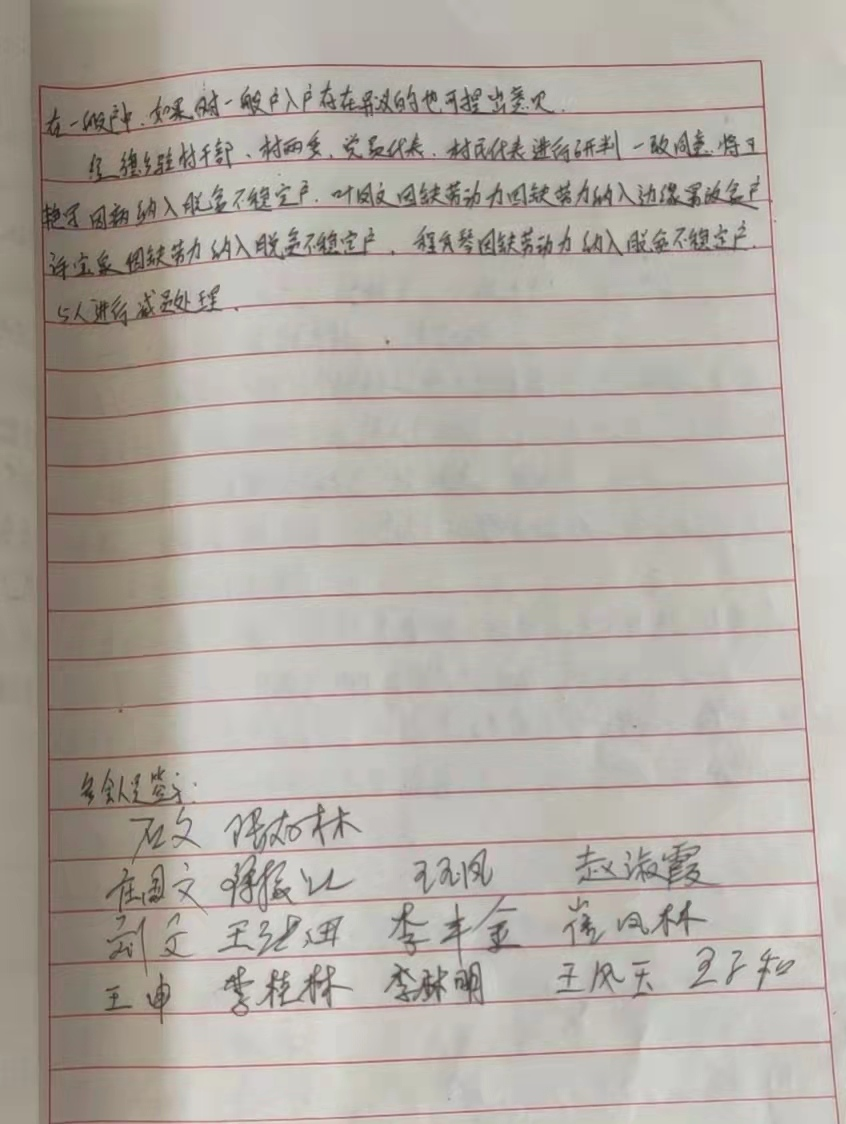 在一般户中，如果对一般户入户存在异议的也可提出意见.
经 乡驻村干部、村两委、党员代表、村民代表进行研判 一致同意 将王
艳 因病纳入脱贫不稳定户. 叶国文因缺劳动力因缺劳力纳入边缘易致贫户
许宝泉 因缺劳力纳入脱贫不稳定户, 程有琴因缺劳动力纳入脱贫不稳定户.
5人进行减员处理.
参会人员签字:
石文 林
庄国文 王玉凤 赵淑霞
刘文 王 李丰金 崔凤林
王申 李桂林 李林明 王凤玉 王子和